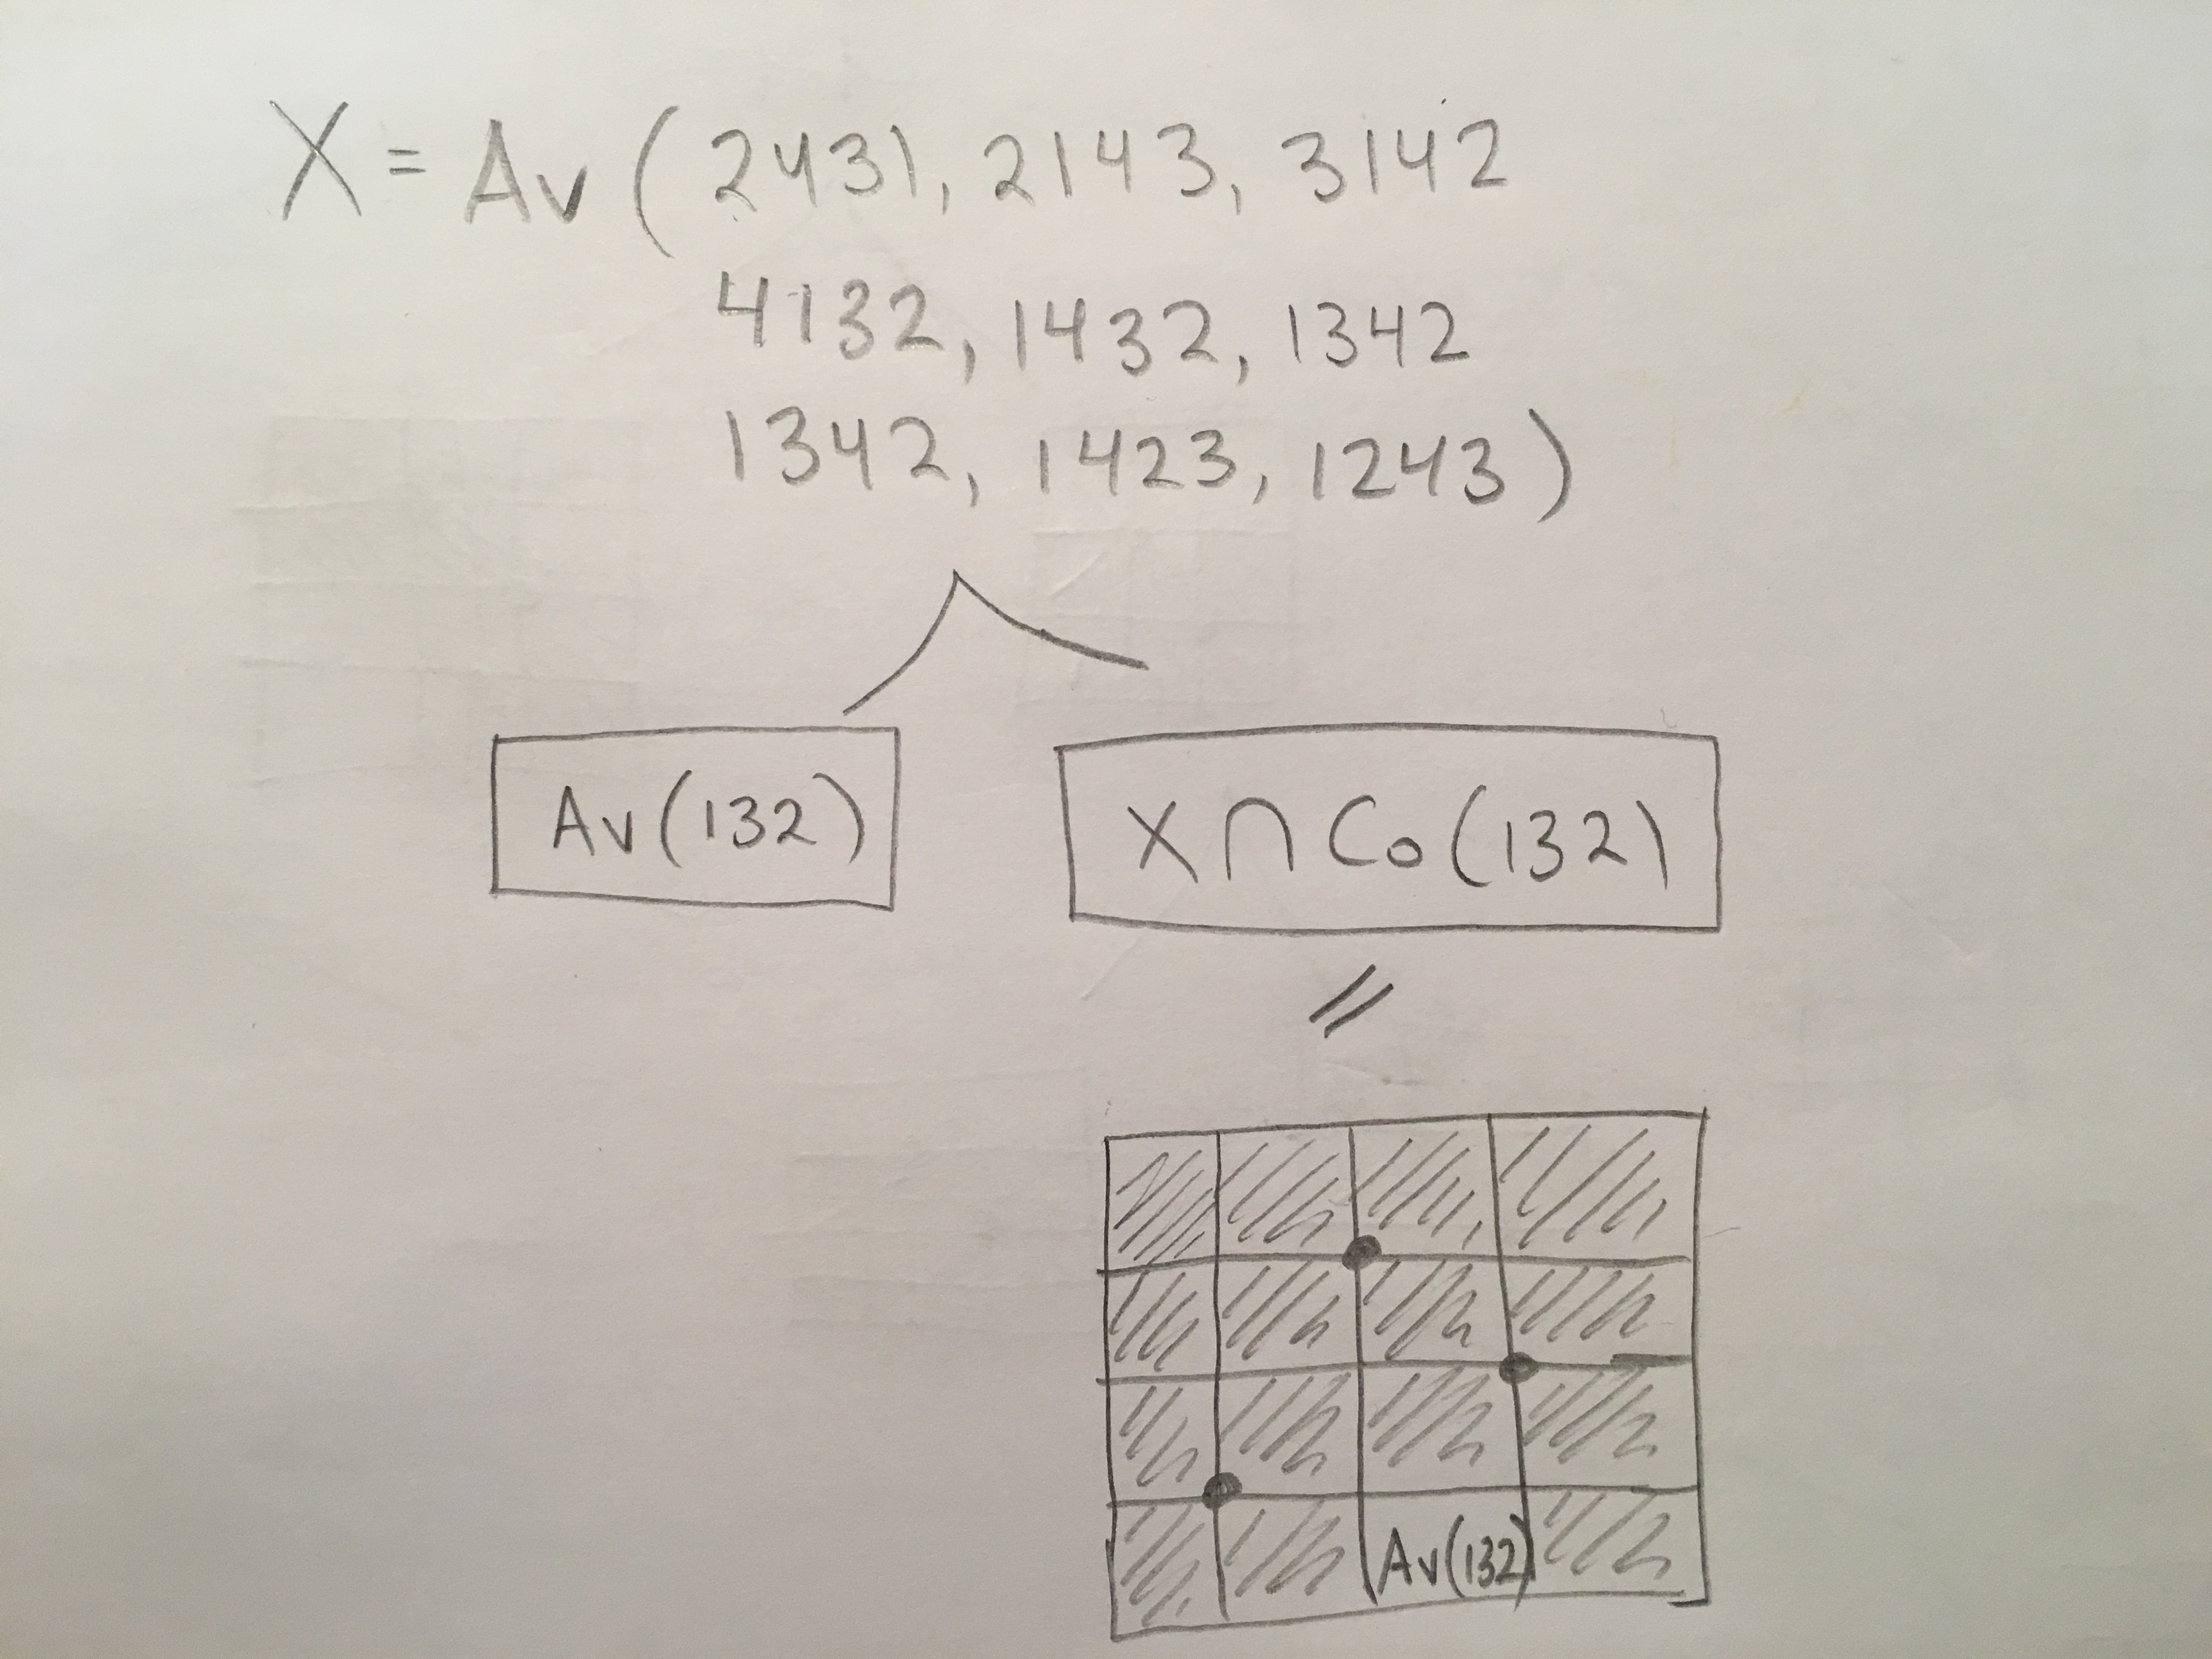 X = Av ( 2431, 2143, 3142
4132, 1432, 1342
1342, 1423, 1243 )
Av(132)
X ∩ Co(132)
=
Av(132)